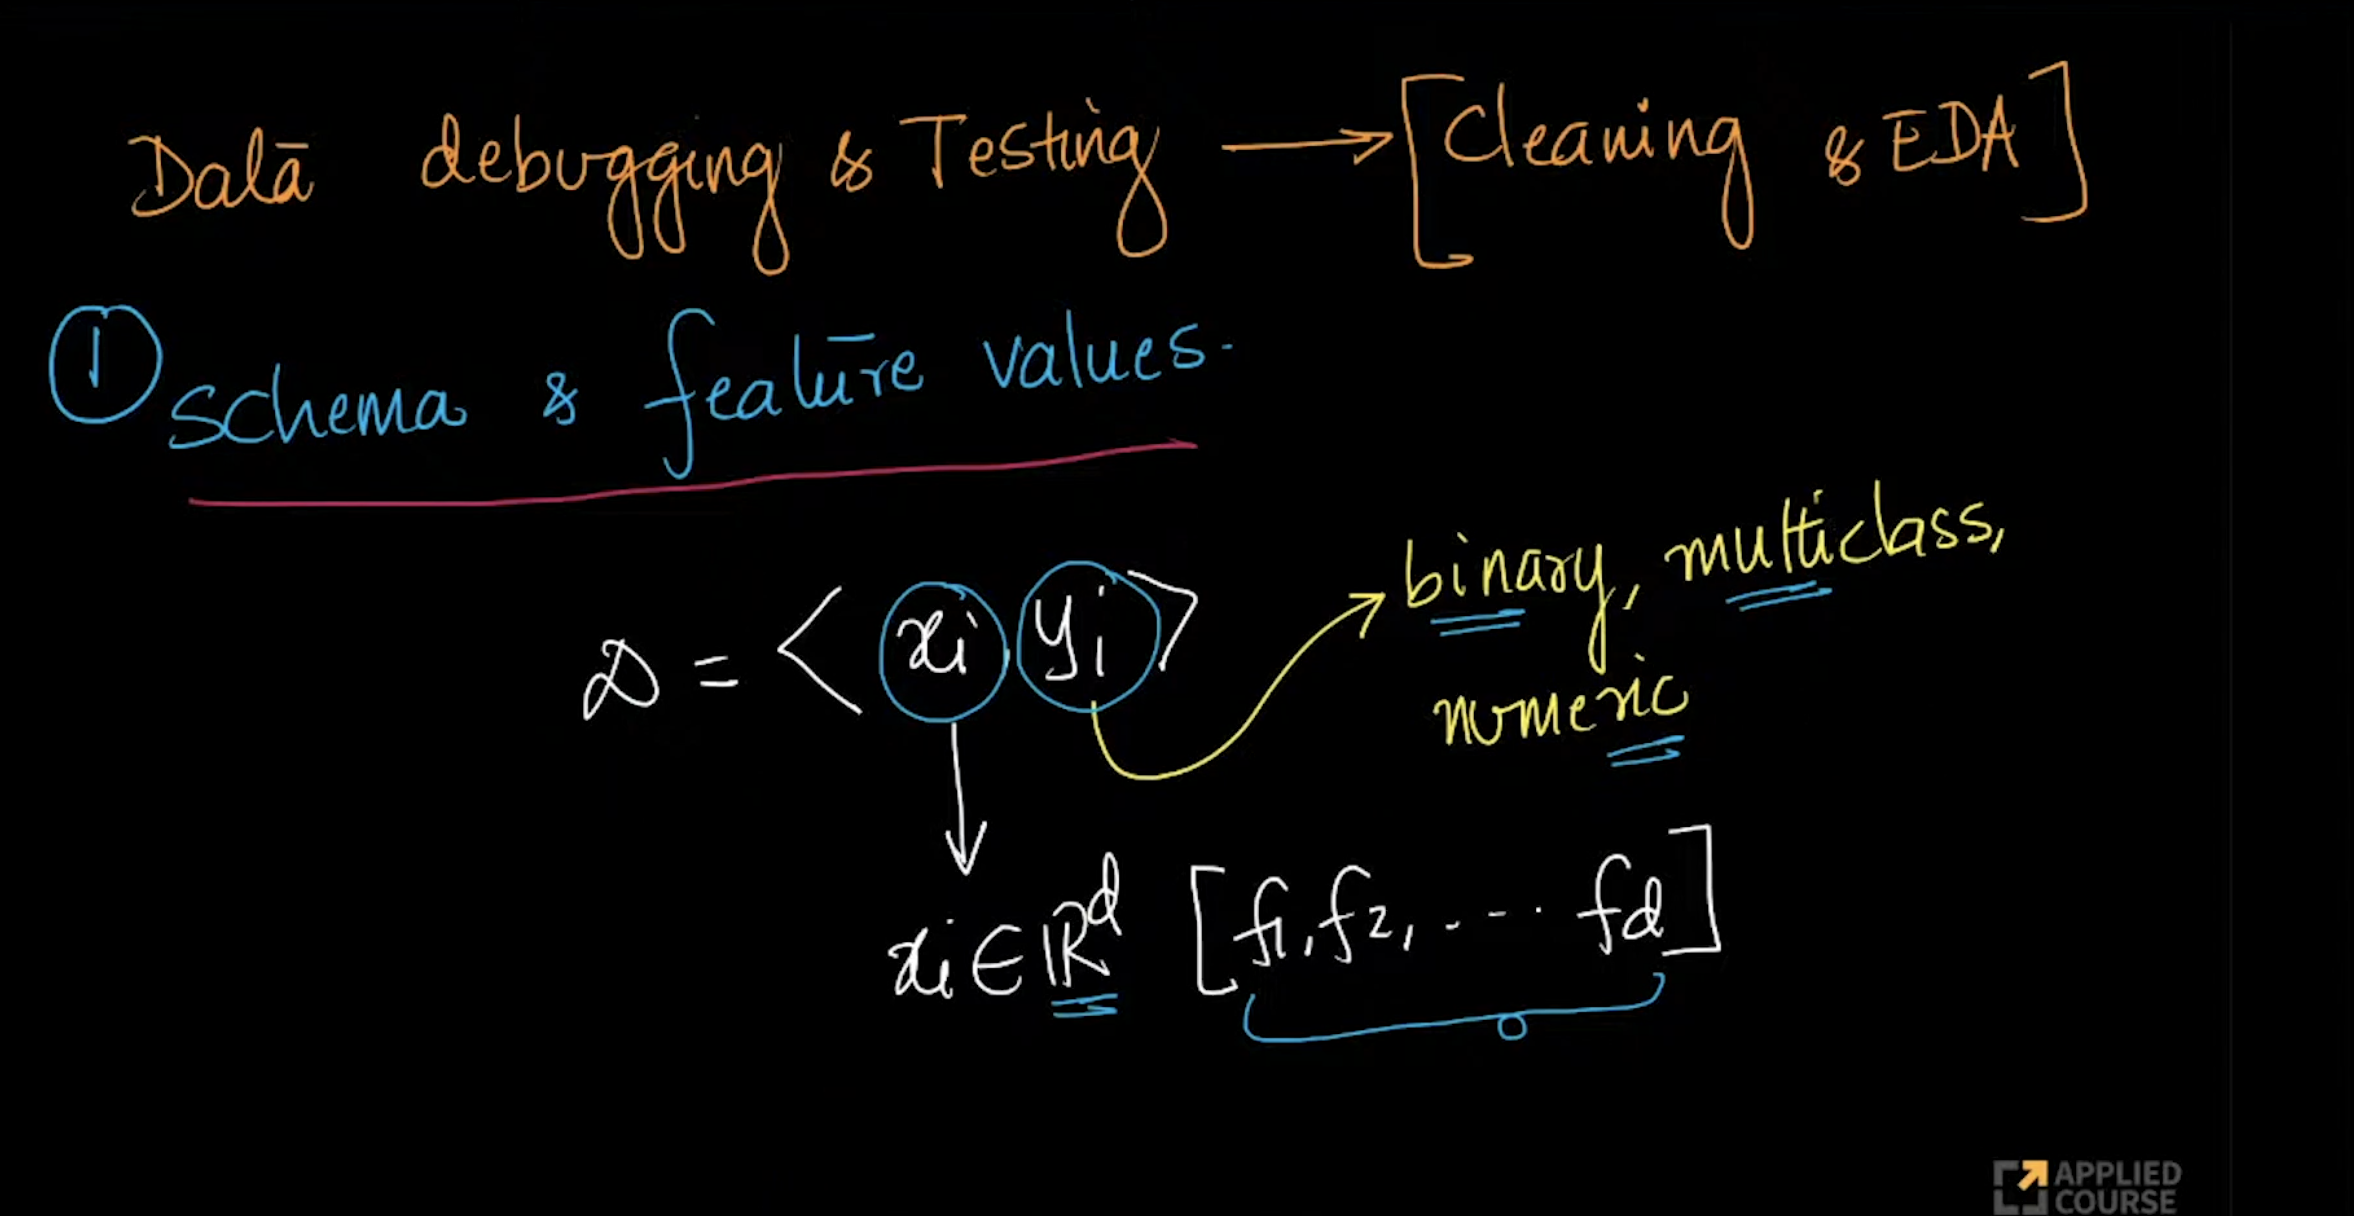 Data debugging & Testing → [Cleaning & EDA]
① Schema & feature values.
binary, multiclass,
D = < xi, yi >
numeric
xi ∈ ℝ^d [f1, f2, .--.. fd]
APPLIED
COURSE